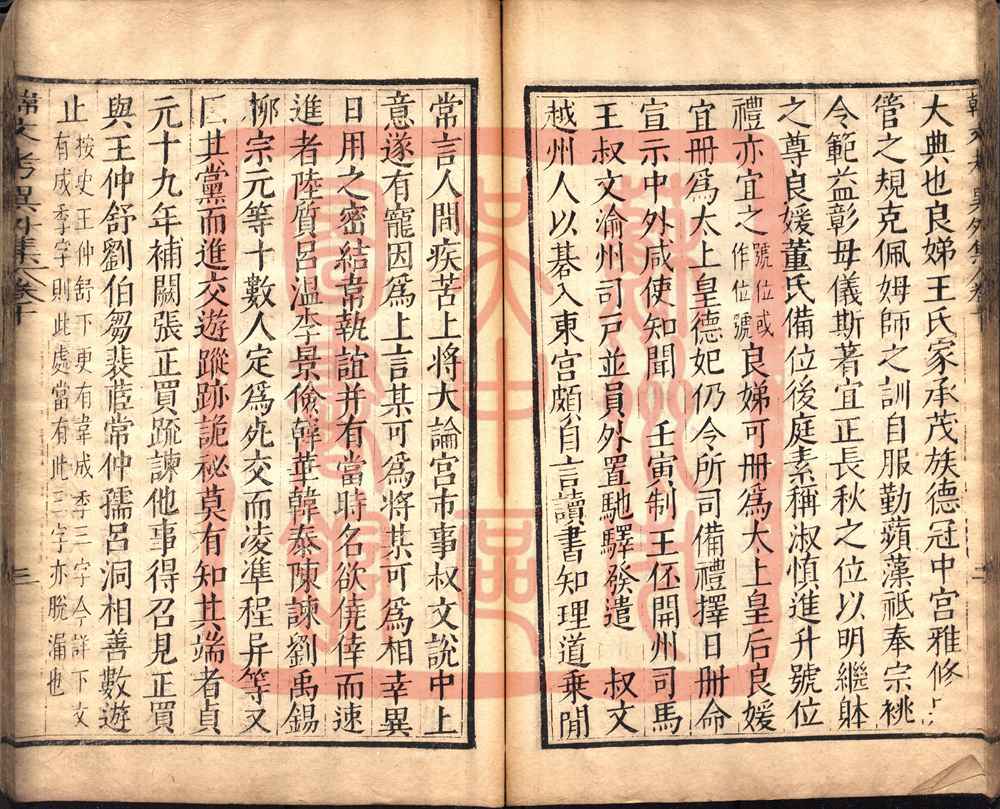 大典也良娣王氏家承茂族德冠中宮雅修
管之規克佩姆師之訓自服勤蘋藻祗奉宗祧
令範益彰母儀斯著宜正長秋之位以明繼躰
之尊良媛董氏備位後庭素稱淑慎進升號位
禮亦宜之號位或作位號良娣可冊爲太上皇后良媛
宜冊爲太上皇德妃仍令所司備禮擇日冊命
宣示中外咸使知聞 壬寅制王伾開州司馬
王叔文渝州司戶並員外置馳驛發遣 叔文
越州人以碁入東宮頗自言讀書知理道乘閒
常言人間疾苦上將大論宮市事叔文說中上
意遂有寵因爲上言某可爲將某可爲相幸異
日用之密結韋執誼并有當時名欲僥倖而速
進者陸質呂溫李景儉韓曄韓泰陳諫劉禹錫
柳宗元等十數人定爲死交而凌準程异等又
因其黨而進交遊蹤跡詭秘莫有知其端者貞
元十九年補闕張正買疏諫他事得召見正買
與王仲舒劉伯芻裴茝常仲孺呂洞相善數遊
止按史王仲舒下更有韋成季三字今詳下文有成季字則此處當有此三字亦脫漏也
韓文考異外集卷十
三